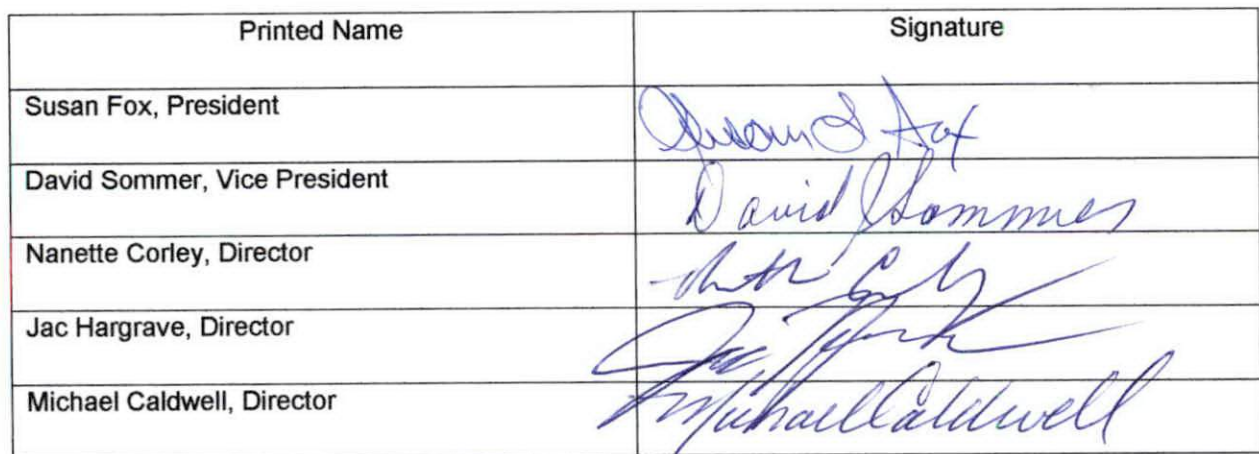 Printed Name Signature
Susan Fox, President Susan L Fox
David Sommer, Vice President David J Sommer
Nanette Corley, Director
Jac Hargrave, Director Jac
Michael Caldwell, Director Michael Caldwell